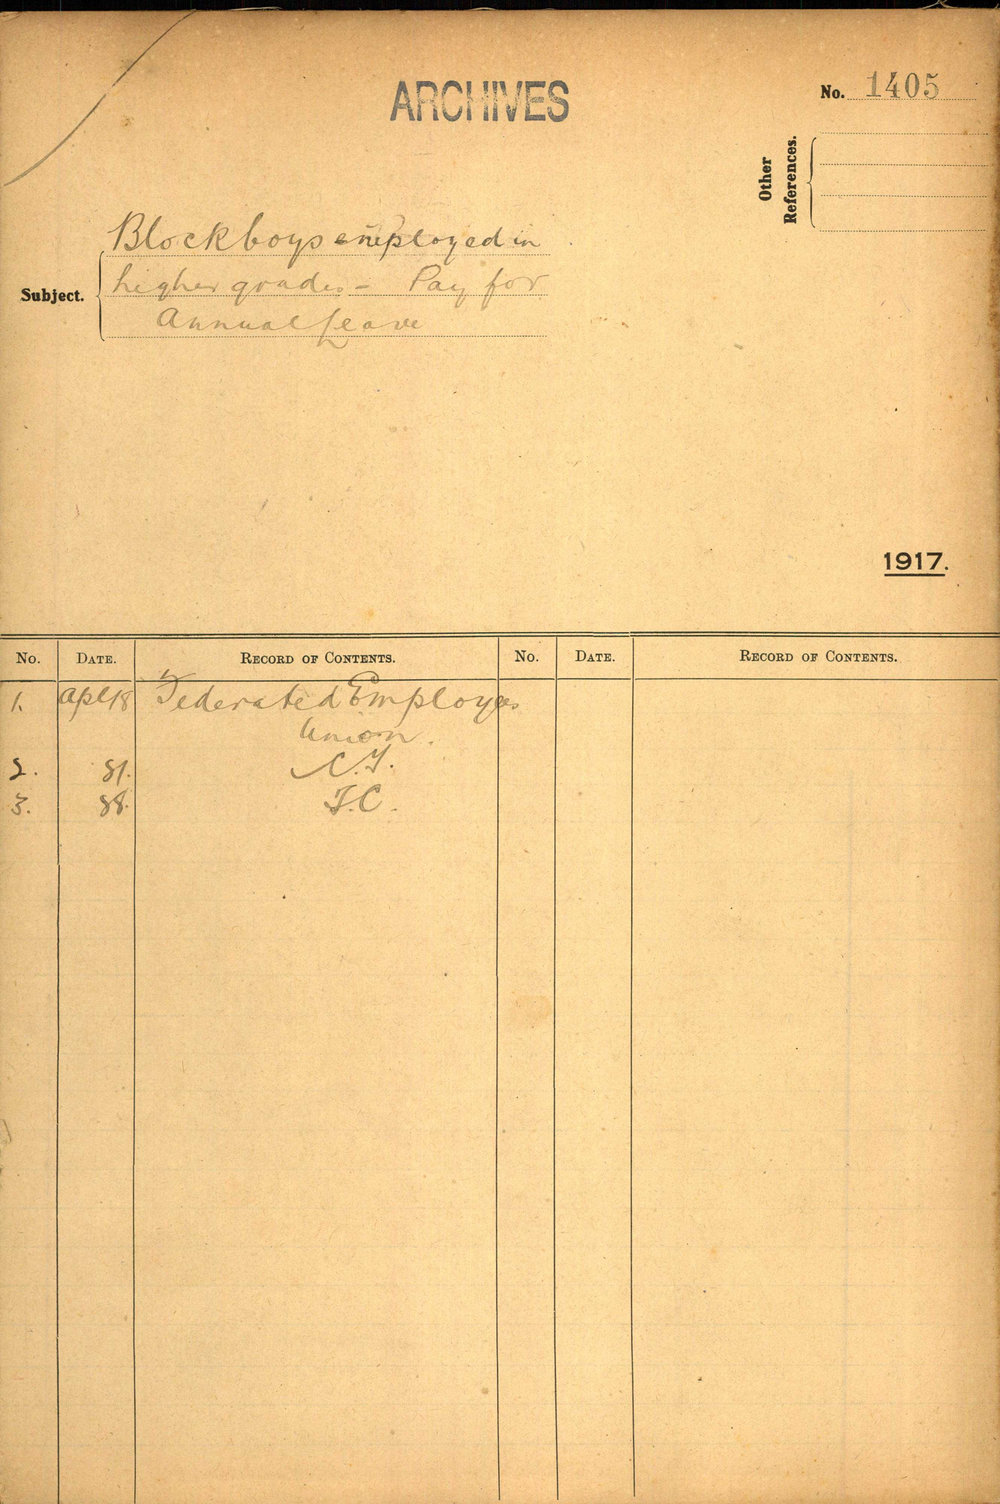 ARCHIVES
No. 1405
Other References.
Subject.
Blockboys employed in
higher grades - Pay for
Annual Leave
1917.
No. DATE. RECORD OF CONTENTS. No. DATE. RECORD OF CONTENTS.
1. Apl 18 Federated Employees
Union.
2. C.T.
3. T.C.